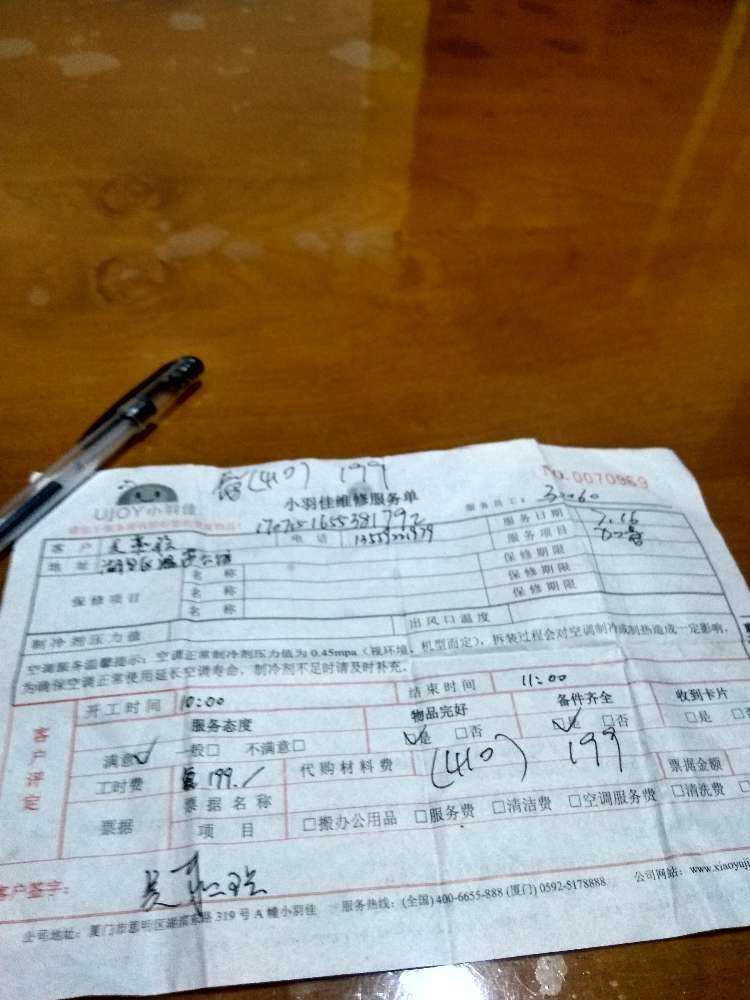 (410) 199
NO.0070969
UJOY小羽佳
小羽佳维修服务单
服务员工：
170751655381792
客 户
电 话 13559221979
服务日期 7.16
地 址
服务项目
保修项目
名 称
保修期限
名 称
保修期限
名 称
保修期限
制冷剂压力值
出风口温度
空调服务温馨提示：空调正常制冷剂压力值为 0.45mpa（视环境、机型而定），拆装过程会对空调制冷或制热造成一定影响，
为确保空调正常使用延长空调寿命，制冷剂不足时请及时补充。
客户评定
开工时间 10:00
结束时间 11:00
服务态度
物品完好
备件齐全
收到卡片
满意 一般□ 不满意□
是 □否
是 □否
□是 □否
工时费 199./
代购材料费 (410) 199
票据金额
票据
票据名称
项 目
□搬办公用品 □服务费 □清洁费 □空调服务费 □清洗费
客户签字：
公司地址：厦门市思明区湖滨东路 319 号 A 幢小羽佳 服务热线：(全国) 400-6655-888 (厦门) 0592-5178888 公司网站：www.xiaoyuji